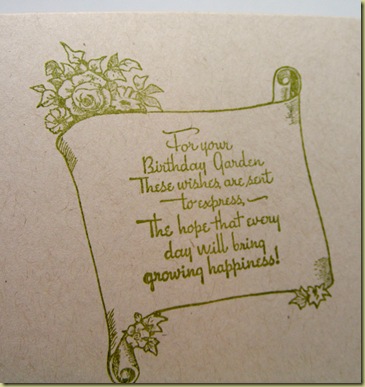 For your
Birthday Garden
These wishes are sent
— to express, —
The hope that every
day will bring
growing happiness!